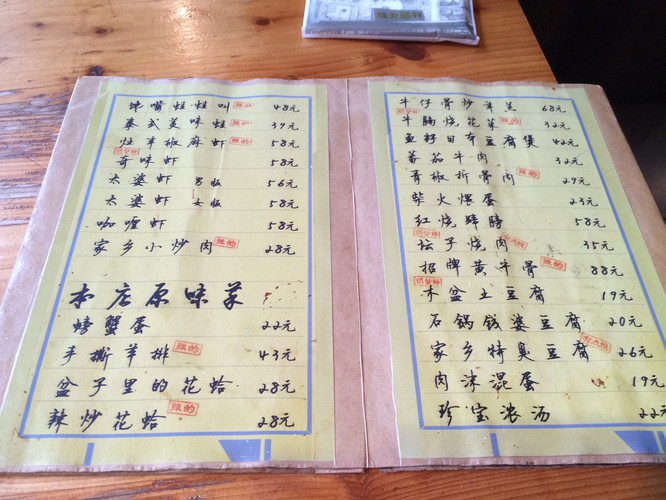 馋嘴蛙蛙叫 辣的 48元
泰式美味蛙 辣的 39元
灶羊椒麻虾 辣的 58元
奇味虾 58元
太婆虾 男版 56元
太婆虾 女版 58元
咖喱虾 58元
家乡小炒肉 辣的 28元
本店原味菜
螃蟹蛋 22元
手撕羊排 辣的 43元
盆子里的花蛤 28元
辣炒花蛤 辣的 28元
牛仔骨炒年羔 68元
牛腩烧花菜 辣的 32元
鱼籽日本豆腐煲 42元
蕃茄牛肉 32元
青椒拆骨肉 辣的 29元
柴火煨蛋 23元
红烧蹄膀 58元
坛子烧肉 35元
招牌黄牛骨 辣的 88元
木盆土豆腐 19元
石锅钱婆豆腐 20元
家乡特臭豆腐 26元
肉沫混蛋 19元
珍宝浓汤 22元